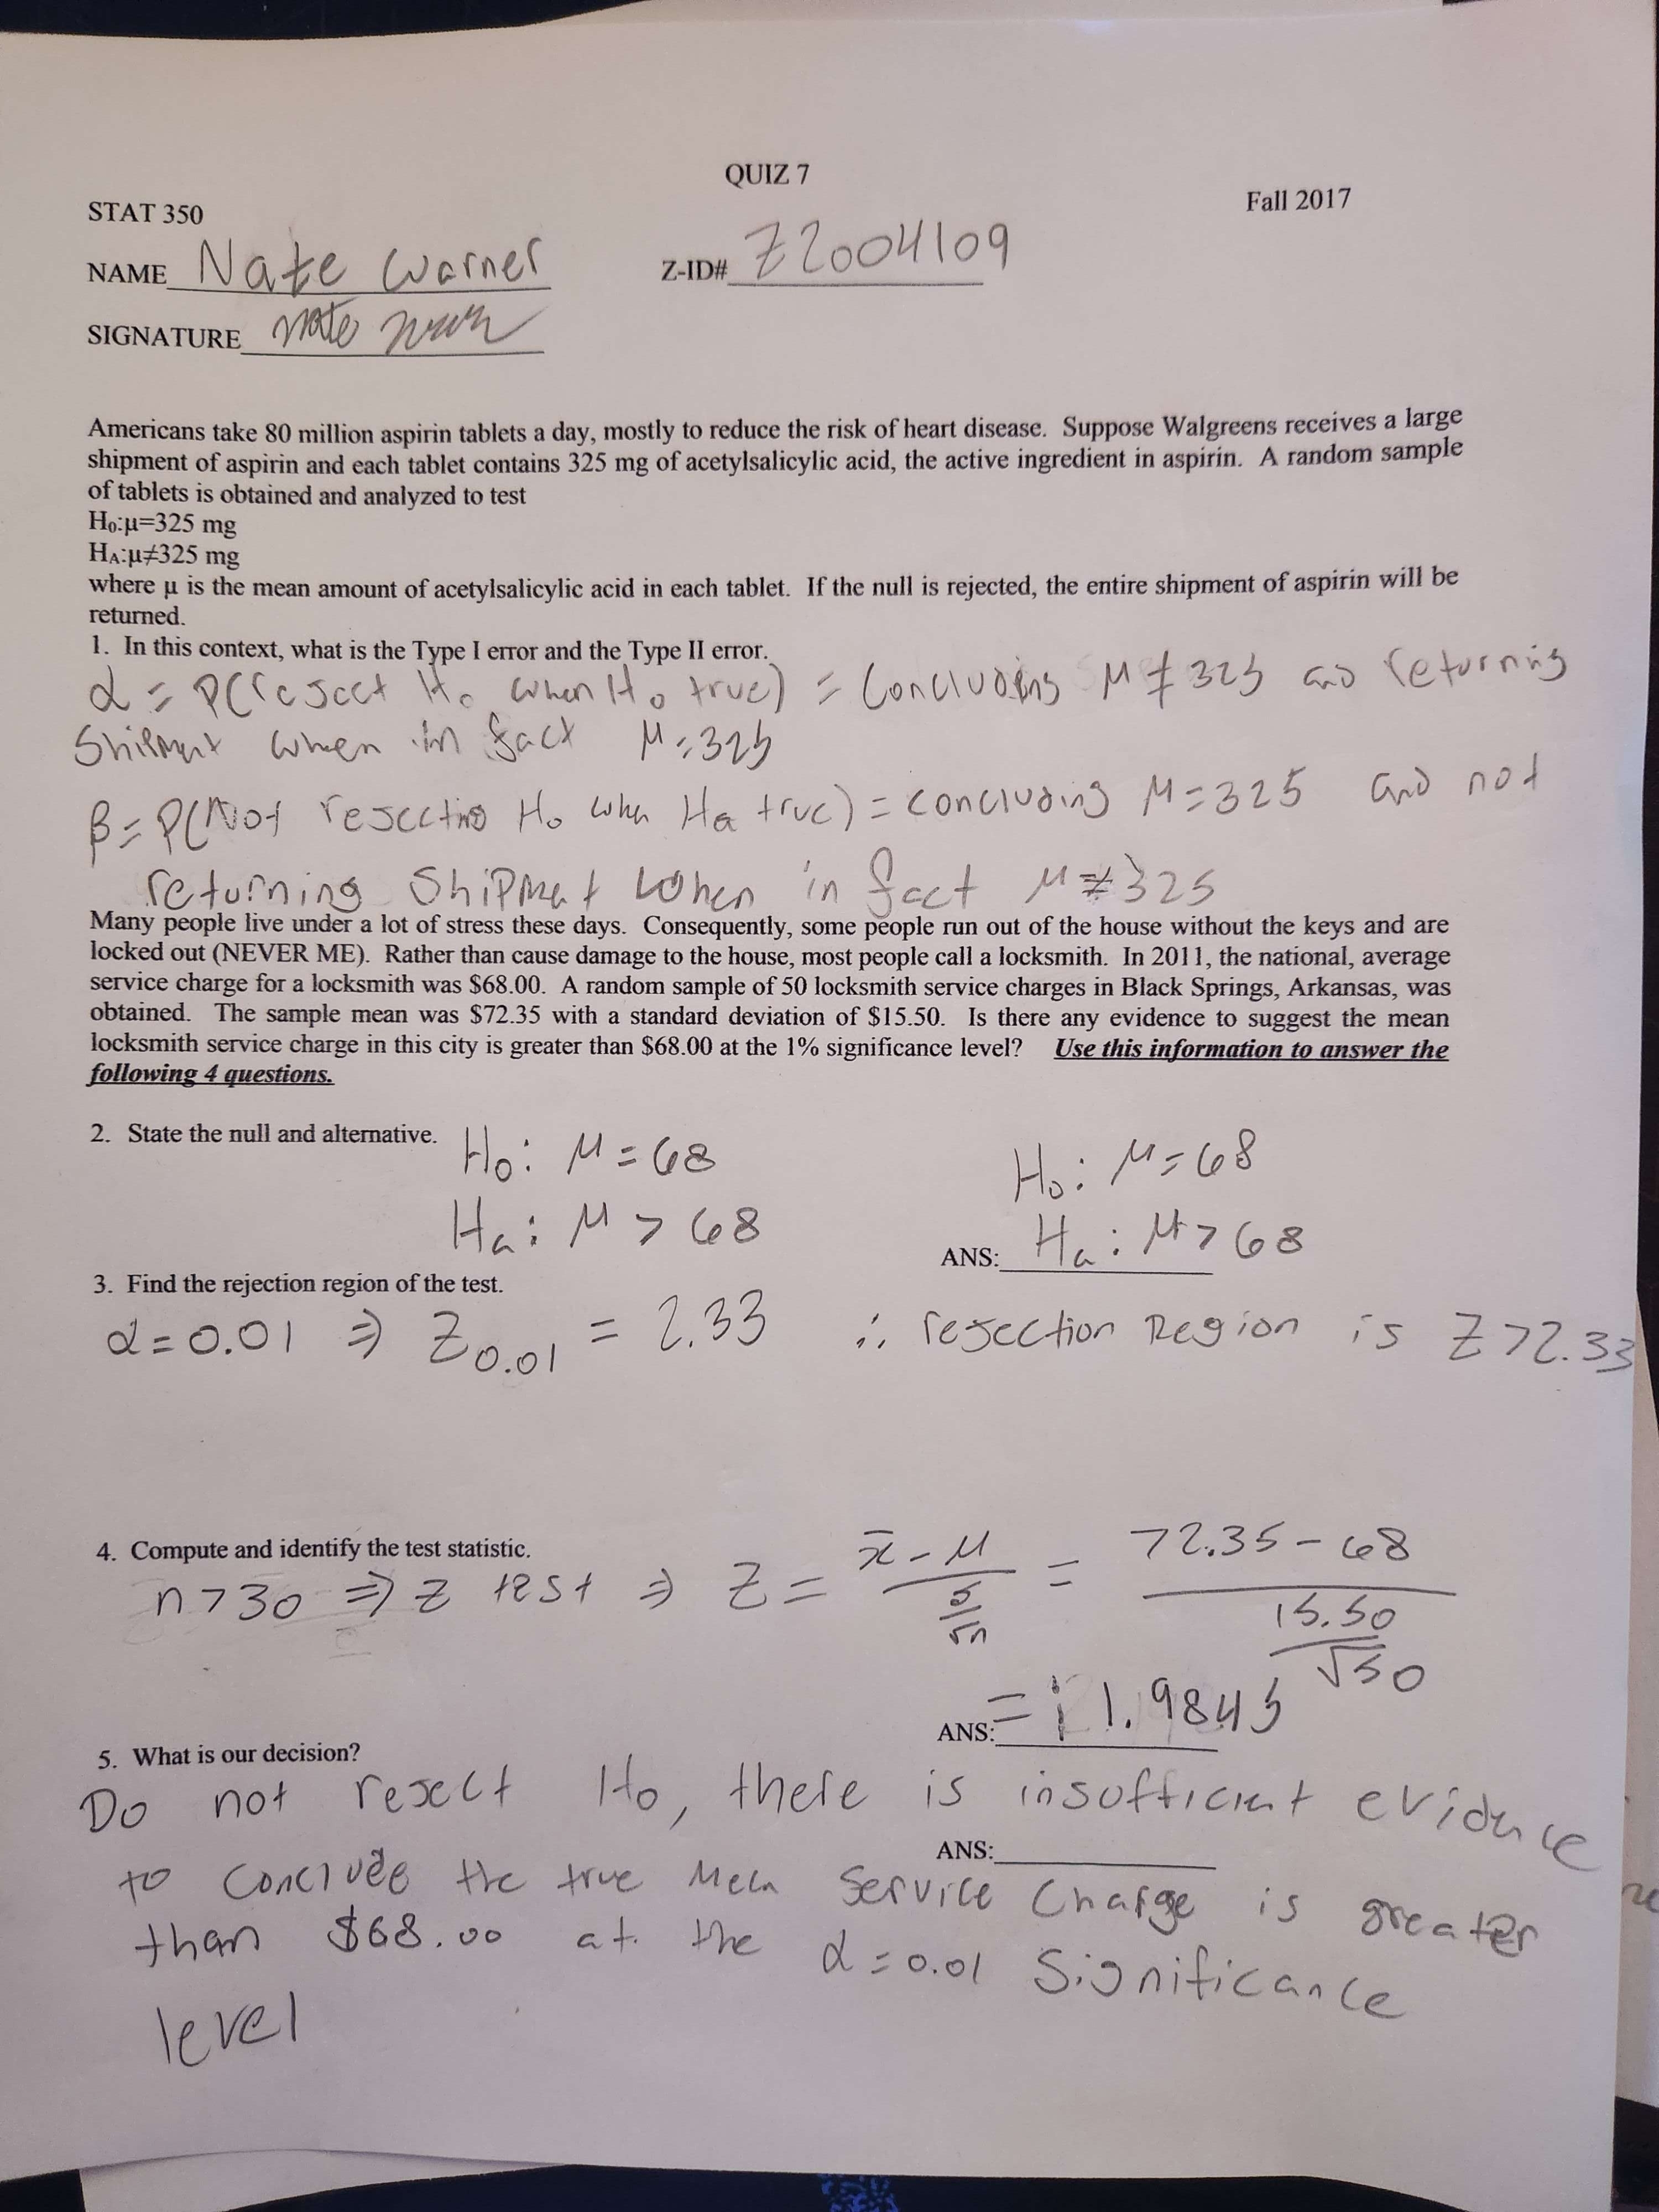 QUIZ 7
STAT 350
Fall 2017
NAME Nate Warner
Z-ID# Z2004109
SIGNATURE
Americans take 80 million aspirin tablets a day, mostly to reduce the risk of heart disease. Suppose Walgreens receives a large
shipment of aspirin and each tablet contains 325 mg of acetylsalicylic acid, the active ingredient in aspirin. A random sample
of tablets is obtained and analyzed to test
H₀:μ=325 mg
Hᴀ:μ≠325 mg
where μ is the mean amount of acetylsalicylic acid in each tablet. If the null is rejected, the entire shipment of aspirin will be
returned.
1. In this context, what is the Type I error and the Type II error.
α = P(reject H₀ when H₀ true) = Concluding μ ≠ 325 and returning
Shipment when in fact μ = 325
β = P(Not rejecting H₀ when Ha true) = concluding μ = 325 and not
returning Shipment when in fact μ ≠ 325
Many people live under a lot of stress these days. Consequently, some people run out of the house without the keys and are
locked out (NEVER ME). Rather than cause damage to the house, most people call a locksmith. In 2011, the national, average
service charge for a locksmith was $68.00. A random sample of 50 locksmith service charges in Black Springs, Arkansas, was
obtained. The sample mean was $72.35 with a standard deviation of $15.50. Is there any evidence to suggest the mean
locksmith service charge in this city is greater than $68.00 at the 1% significance level? Use this information to answer the
following 4 questions.
2. State the null and alternative.
H₀: μ = 68
Ha: μ > 68
H₀: μ = 68
ANS: Ha: μ > 68
3. Find the rejection region of the test.
α = 0.01 ⇒ Z0.01 = 2.33 ∴ rejection Region is Z > 2.33
4. Compute and identify the test statistic.
n > 30 ⇒ z test ⇒ Z = (x̄ - μ)/(s/√n) = (72.35 - 68)/(15.50/√50)
ANS: = 1.9845
5. What is our decision?
Do not reject H₀, there is insufficient evidence
ANS:
to conclude the true mean service charge is greater
than $68.00 at the α = 0.01 Significance
level